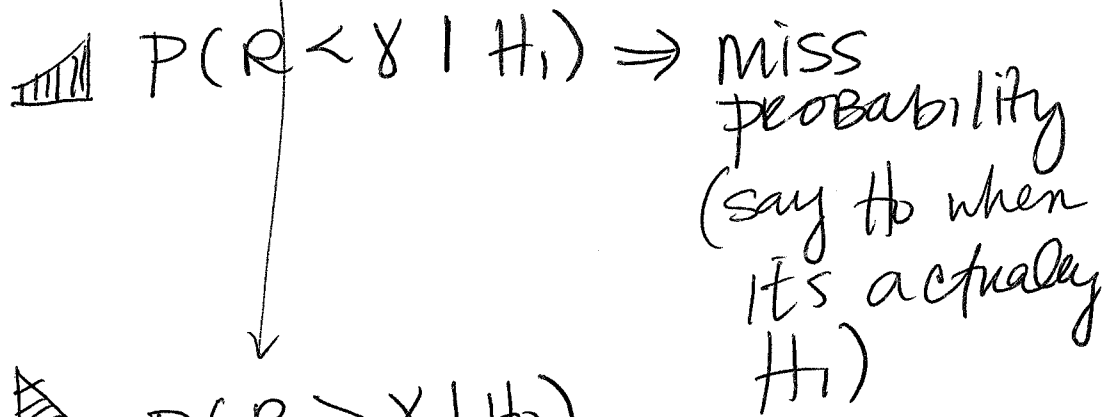 P(R < γ | H₁) ⇒ miss
probability
(say H₀ when
it's actually
H₁)
P(R > γ | H₀)